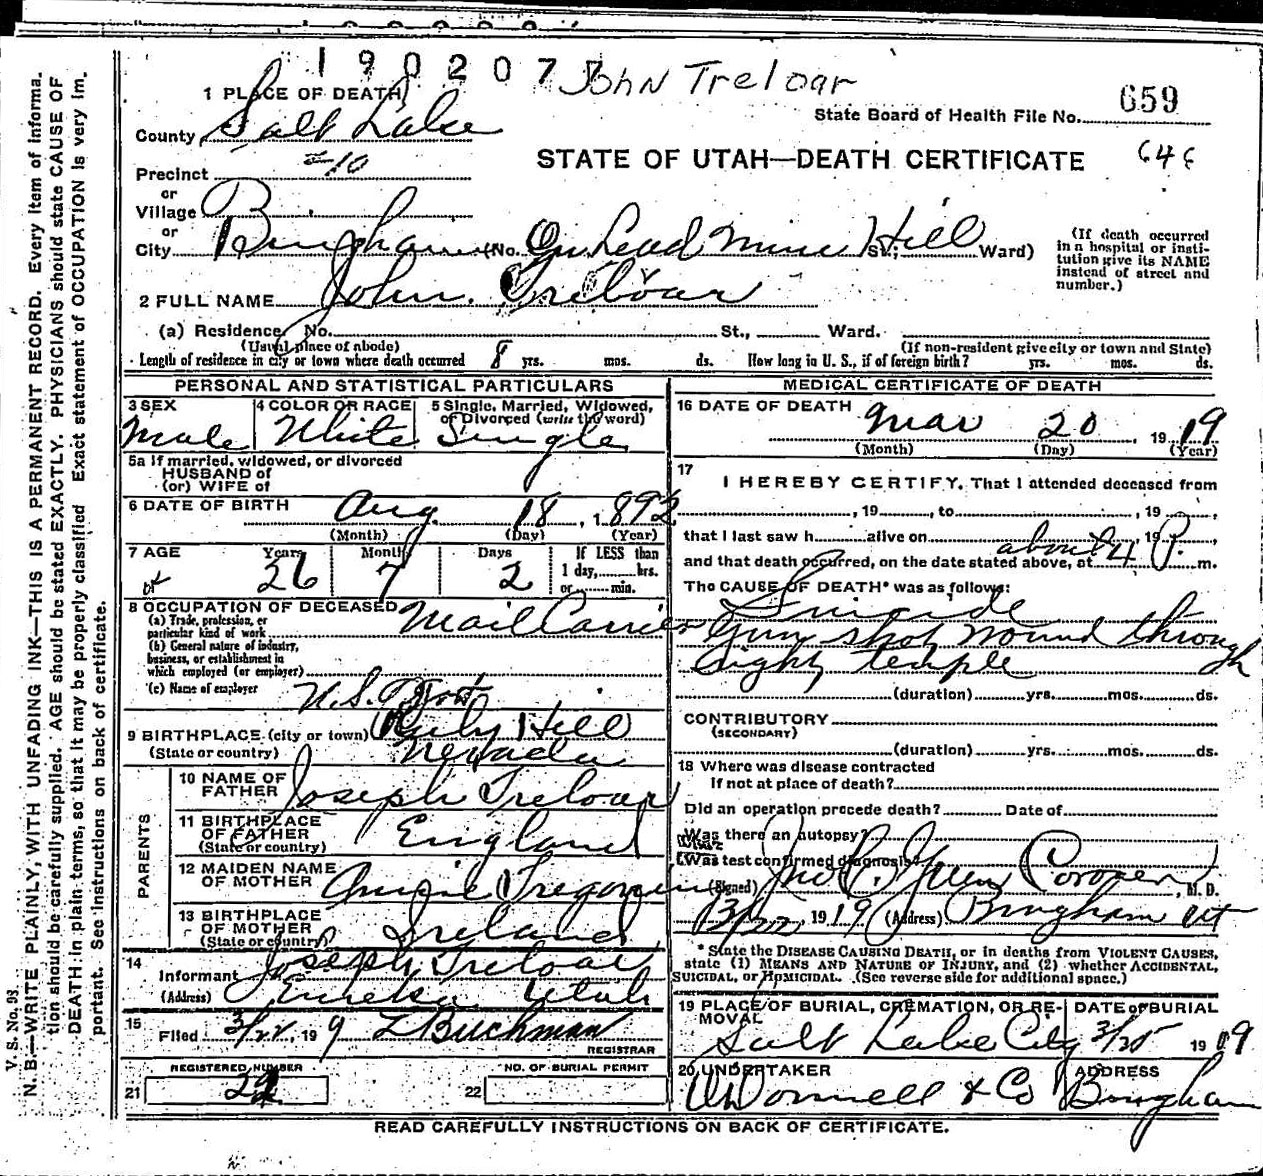 1902077 John Treloar
1 PLACE OF DEATH
State Board of Health File No. 659
County, Salt Lake
STATE OF UTAH—DEATH CERTIFICATE 646
Precinct 10
or
Village
or
City Bingham (No. On Lead Mine Hill St.; Ward)
(If death occurred in a hospital or institution give its NAME instead of street and number.)
2 FULL NAME John Treloar
(a) Residence. No. St., Ward.
(Usual place of abode) (If non-resident give city or town and State)
Length of residence in city or town where death occurred 8 yrs. mos. ds. How long in U. S., if of foreign birth? yrs. mos. ds.
PERSONAL AND STATISTICAL PARTICULARS
3 SEX 4 COLOR OR RACE 5 Single, Married, Widowed, or Divorced (write the word)
Male White Single
5a If married, widowed, or divorced
HUSBAND of
(or) WIFE of
6 DATE OF BIRTH Aug 18, 1892
(Month) (Day) (Year)
7 AGE Years Months Days If LESS than
26 7 2 1 day, hrs.
or min.
8 OCCUPATION OF DECEASED Mail Carrier
(a) Trade, profession, or
particular kind of work
(b) General nature of industry,
business, or establishment in
which employed (or employer)
(c) Name of employer U.S. Govt
9 BIRTHPLACE (city or town) Ruby Hill
(State or country) Nevada
PARENTS
10 NAME OF FATHER Joseph Treloar
11 BIRTHPLACE OF FATHER England
(State or country)
12 MAIDEN NAME OF MOTHER Annie
13 BIRTHPLACE OF MOTHER Ireland
(State or country)
14 Informant Joseph Treloar
(Address) Eureka Utah
15 Filed 3/22, 19 9 L Buchman
REGISTRAR
REGISTERED NUMBER NO. OF BURIAL PERMIT
21 22
MEDICAL CERTIFICATE OF DEATH
16 DATE OF DEATH Mar 20, 1919
(Month) (Day) (Year)
17
I HEREBY CERTIFY, That I attended deceased from
, 19 , to , 19 ,
that I last saw h alive on , 19 ,
and that death occurred, on the date stated above, at about 4 P. m.
The CAUSE OF DEATH* was as follows:
Suicide
Gun shot wound through
right temple
(duration) yrs. mos. ds.
CONTRIBUTORY
(SECONDARY)
(duration) yrs. mos. ds.
18 Where was disease contracted
If not at place of death?
Did an operation precede death? Date of
Was there an autopsy?
What test confirmed diagnosis?
(Signed) Coroner, M. D.
3/22, 1919 (Address) Bingham Ut
* State the DISEASE CAUSING DEATH, or in deaths from VIOLENT CAUSES,
state (1) MEANS AND NATURE OF INJURY, and (2) whether ACCIDENTAL,
SUICIDAL, or HOMICIDAL. (See reverse side for additional space.)
19 PLACE OF BURIAL, CREMATION, OR REMOVAL DATE OF BURIAL
Salt Lake City 3/25 1919
20 UNDERTAKER ADDRESS
O'Donnell & Co Bingham
READ CAREFULLY INSTRUCTIONS ON BACK OF CERTIFICATE.
V. S. No. 98.
N. B.—WRITE PLAINLY, WITH UNFADING INK—THIS IS A PERMANENT RECORD. Every item of informa-
tion should be carefully supplied. AGE should be stated EXACTLY. PHYSICIANS should state CAUSE OF
DEATH in plain terms, so that it may be properly classified. Exact statement of OCCUPATION is very im-
portant. See instructions on back of certificate.